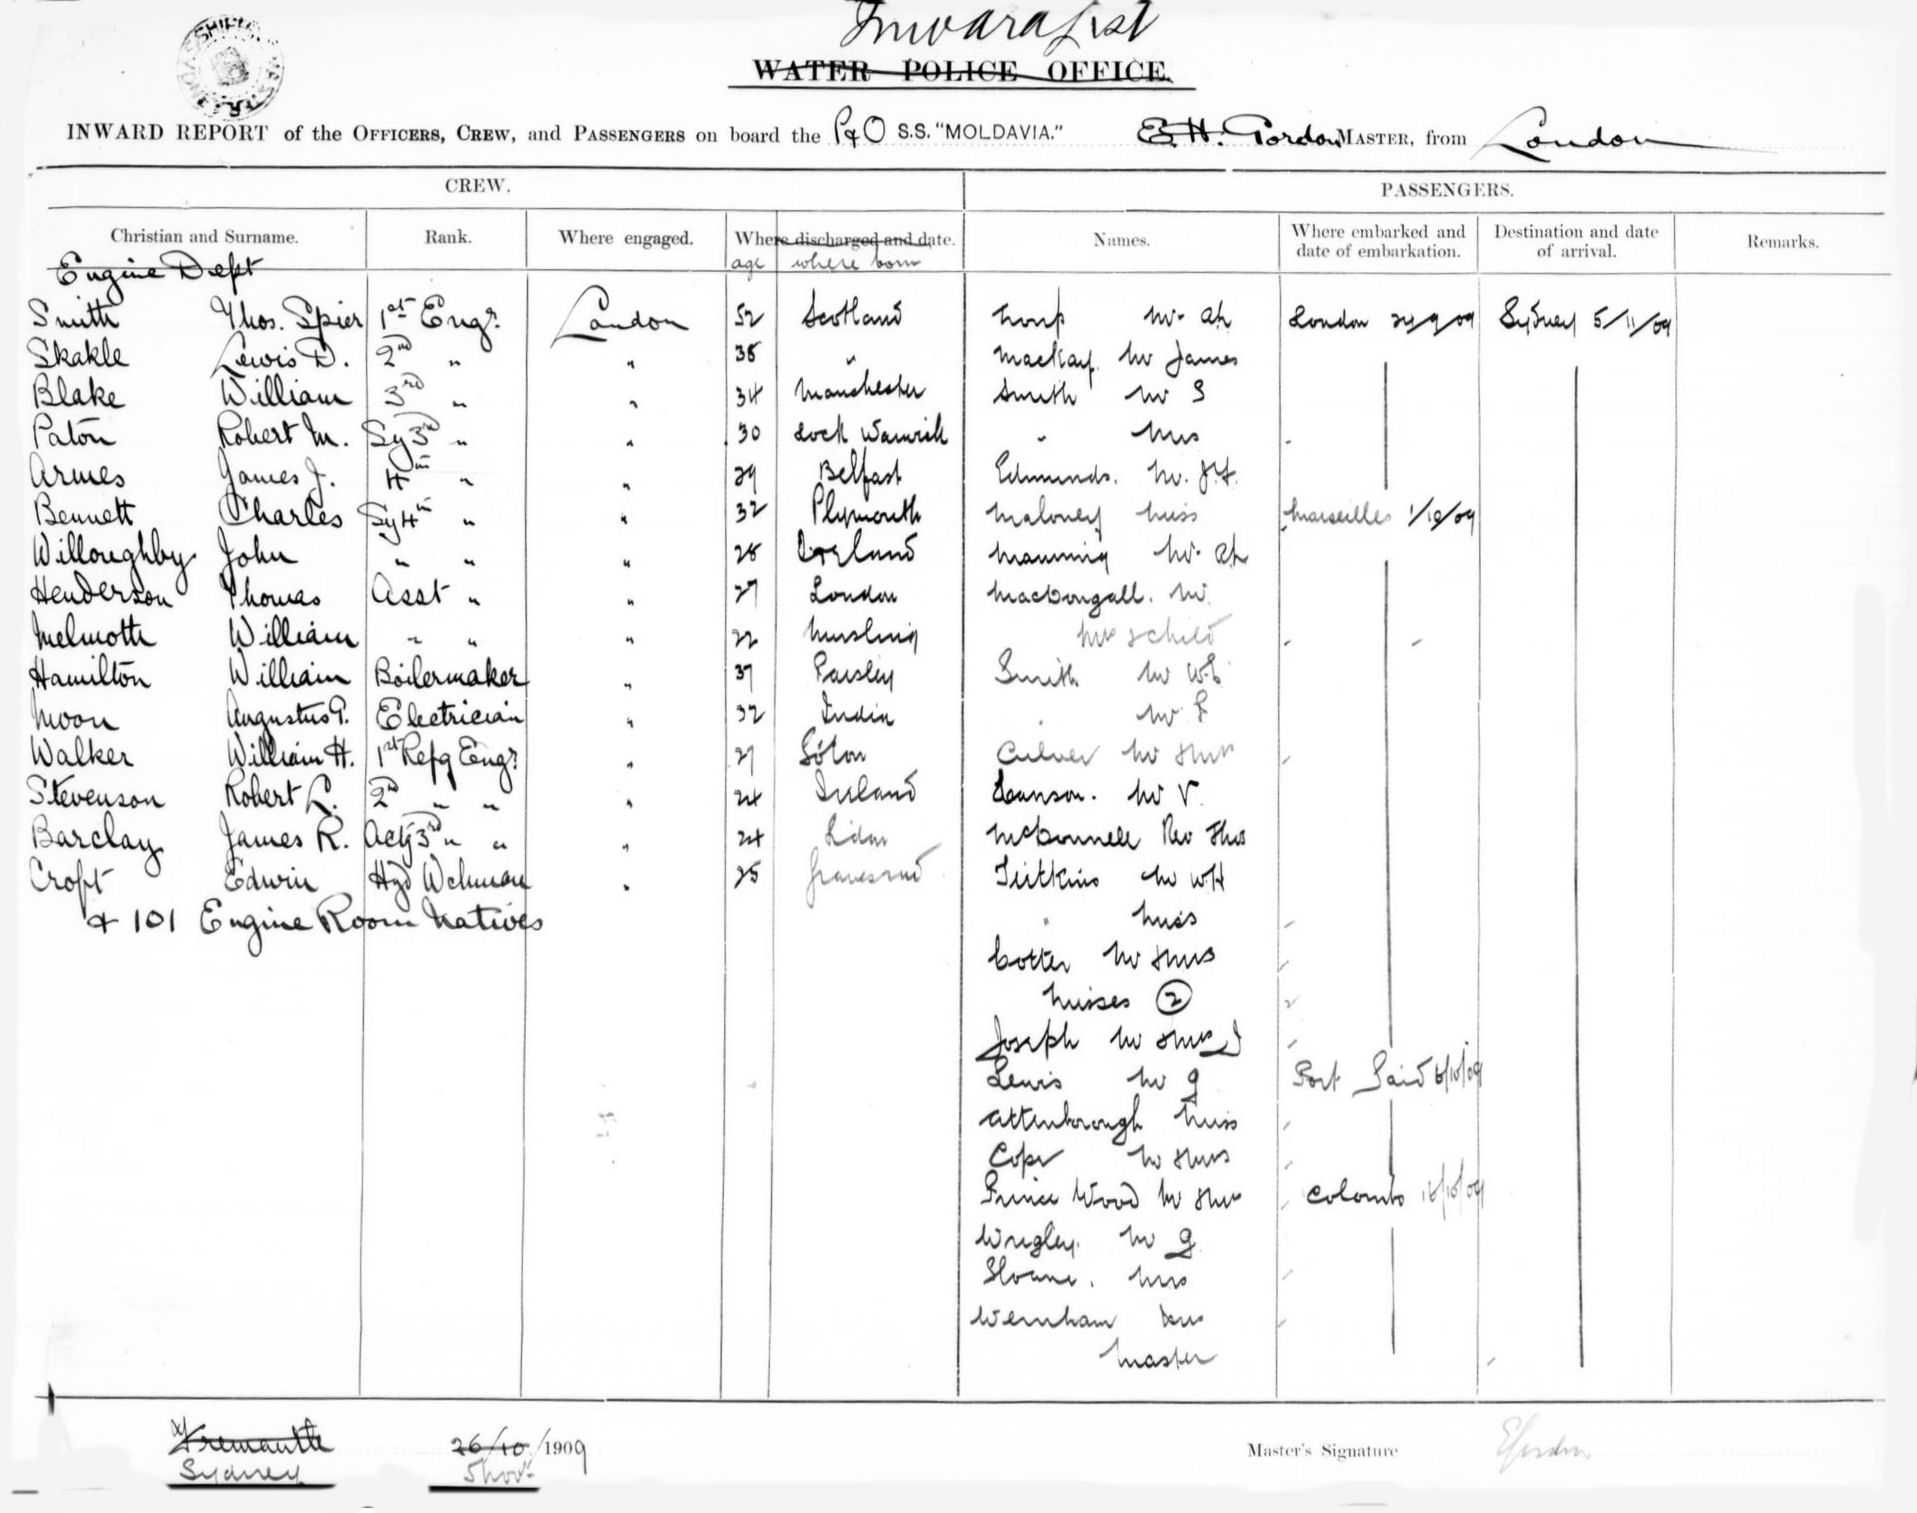 Inward List
WATER POLICE OFFICE.
INWARD REPORT of the OFFICERS, CREW, and PASSENGERS on board the P&O S.S. "MOLDAVIA." E. H. Gordon MASTER, from London
CREW. PASSENGERS.
Christian and Surname. Rank. Where engaged. Where discharged and date. Names. Where embarked and date of embarkation. Destination and date of arrival. Remarks.
age where born
Engine Dept
Smith Thos. Spier 1st Engr. London 52 Scotland Mr. Ah London 24/9/09 Sydney 5/11/09
Skakle Lewis D. 2nd " " 38 " Mackay. Mr James
Blake William 3rd " " 34 Manchester Smith Mr S
Paton Robert M. Sy 3rd " " 30 Lock " Mrs
Armes James J. 4th " " 29 Belfast Edmunds. Mr.
Bennett Charles Sy 4th " " 32 Plymouth Maloney Miss Marseilles 1/10/09
Willoughby John " " " 28 Manning Mr. Ah
Henderson Thomas Asst " " 27 London MacDougall. Mr.
Melmoth William " " " 22 Nursling Mrs & child
Hamilton William Boilermaker " 37 Paisley Smith Mr W.E.
Moon Augustus P. Electrician " 32 India " Mr
Walker William H. 1st Refg Engr " 27 Soton Culver Mr & Mrs
Stevenson Robert L. 2nd " " " 24 Ireland Mr V.
Barclay James R. Actg 3rd " " " 24 McDonnell Rev Thos
Croft Edwin Hyd " 25 Gravesend Mr W.H
& 101 Engine Room Natives " Miss
Cotter Mr & Mrs
Misses 2
Joseph Mr & Mrs J
Lewis Mr G Port Said 6/10/09
Attenborough Miss
Cope Mr & Mrs
Wood Mr & Mrs Colombo 16/10/09
Wrigley. Mr G
Sloane. Mrs
Wernham Mrs
Master
Fremantle 26/10/1909 Master's Signature
Sydney 5 Nov.